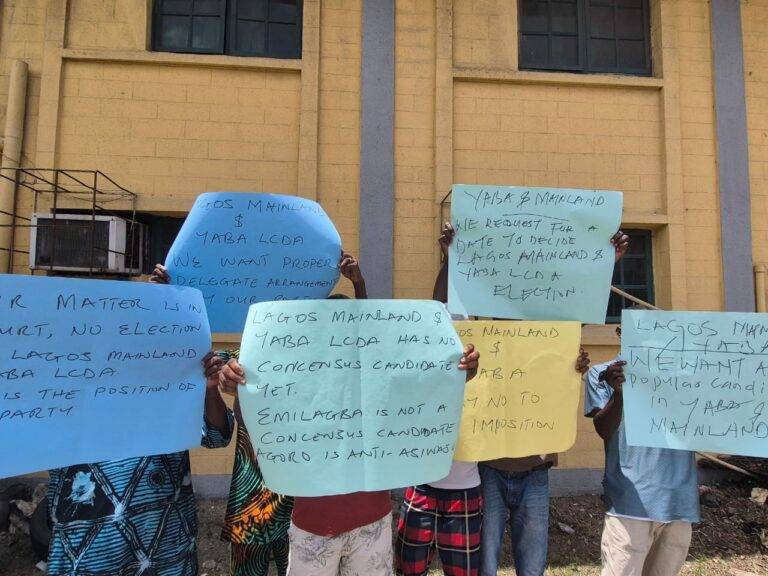 LAGOS MAINLAND
$
YABA LCDA
WE WANT PROPER
DELEGATE ARRANGEMENT
YABA $ MAINLAND
WE REQUEST FOR A
DATE TO DECIDE
LAGOS MAINLAND &
YABA LCDA
ELECTION.
R MATTER IS IN
URT, NO ELECTION
LAGOS MAINLAND
ABA LCDA
IS THE POSITION OF
PARTY
LAGOS MAINLAND &
YABA LCDA HAS NO
CONCENSUS CANDIDATE
YET.
EMILAGBA IS NOT A
CONCENSUS CANDIDATE
AGORO IS ANTI-ASIWAJU
GOS MAINLAND
$
YABA
Y NO TO
IMPOSITION
LAGOS MAIN
YABA
WE WANT A
Popular Candi
in YABA &
MAINLAND